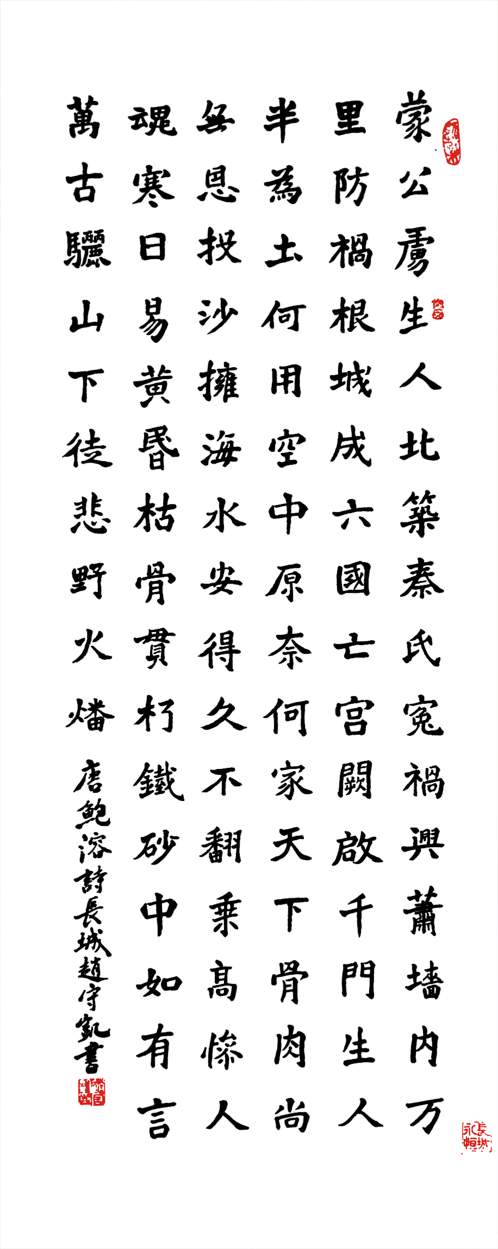 蒙公虜生人北築秦氏冤禍興蕭墻内万
里防禍根城成六國亡宮闕啟千門生人
半為土何用空中原奈何家天下骨肉尚
無恩投沙擁海水安得久不翻乘高慘人
魂寒日易黄昬枯骨貫朽鐵砂中如有言
萬古驪山下徒悲野火燔
唐鮑溶詩長城趙守凱書
長城永恒